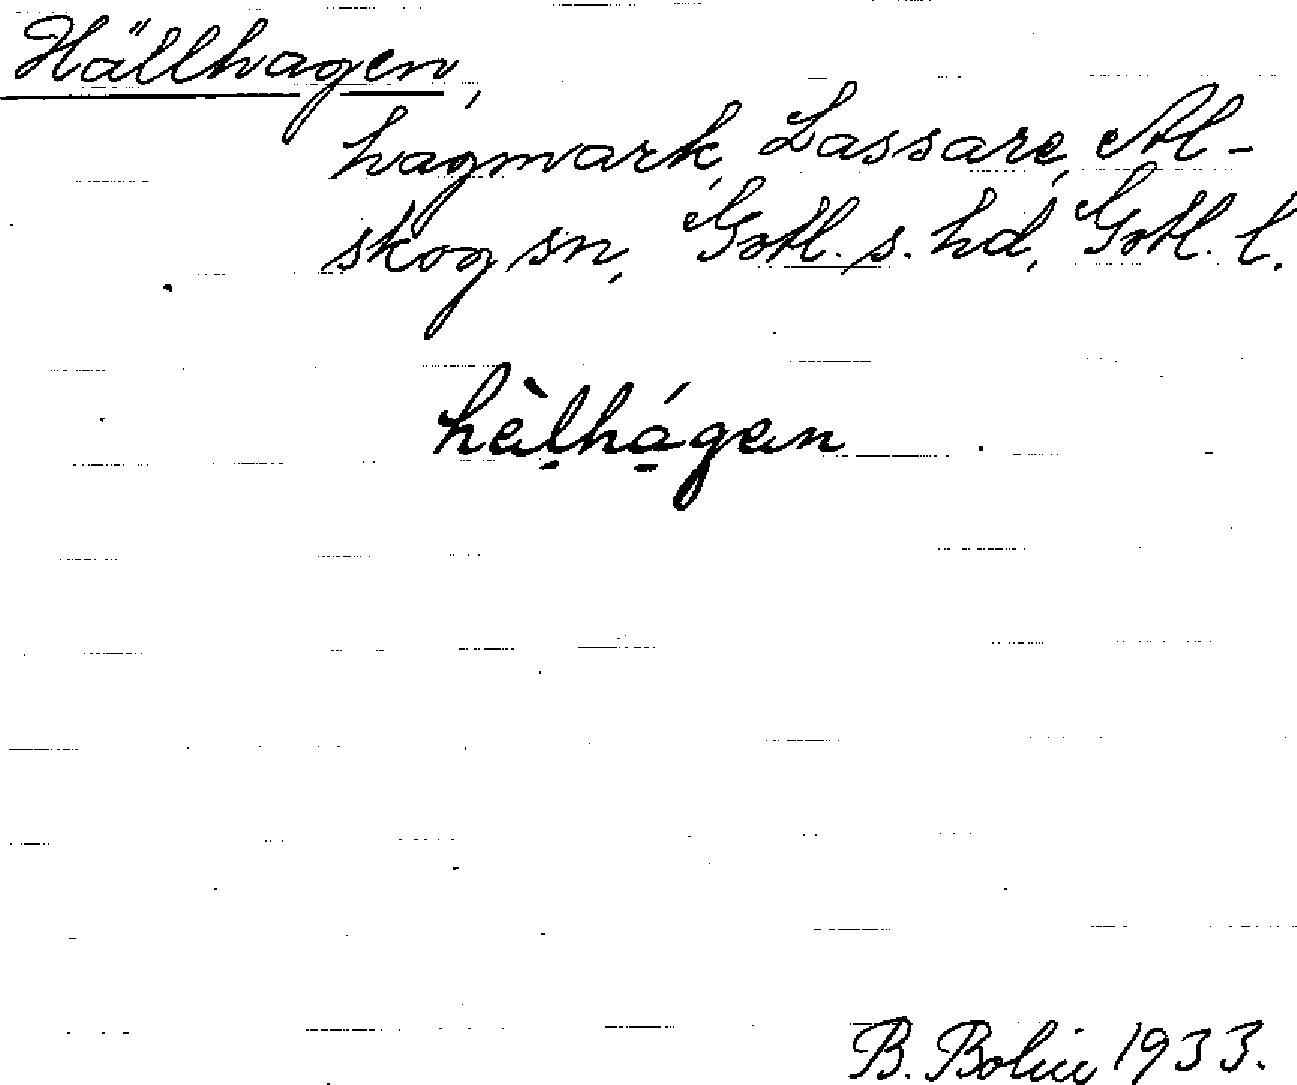 Hällhagen,
hagmark, Lassare, Al-
skog sn, Gotl. s. hd, Gotl. l.
hèḷhá̱gan
B. Bolin 1933.